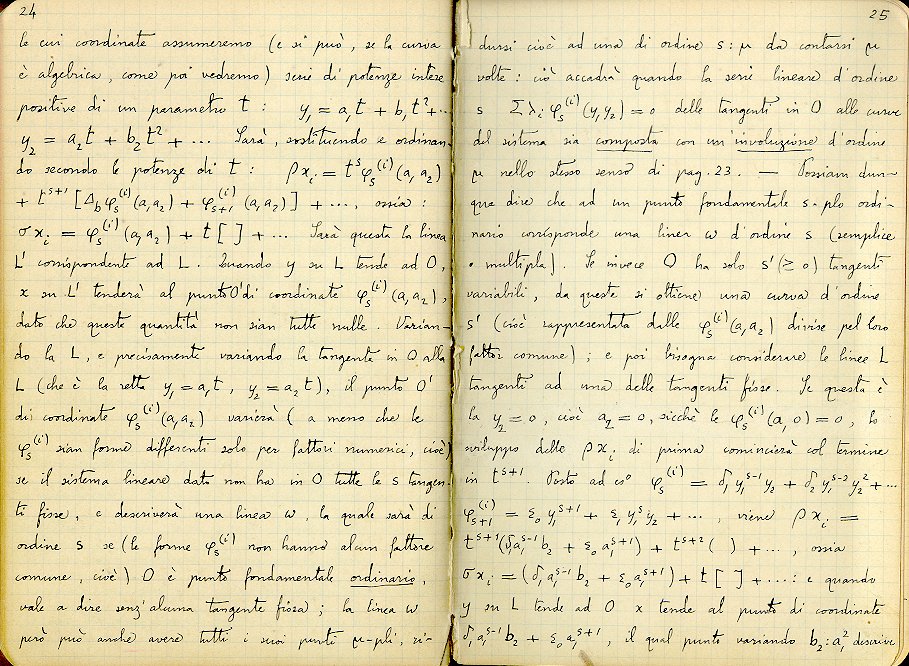 24
le cui coordinate assumeremo (e si può, se la curva
è algebrica, come poi vedremo) serie di potenze intere
positive di un parametro t : y₁ = a₁t + b₁t² + ...
y₂ = a₂t + b₂t² + ... Sarà, sostituendo e ordinan-
do secondo le potenze di t : ρx_i = t^s φ_s^(i)(a₁a₂)
+ t^{s+1} [Δ_b φ_s^(i)(a₁a₂) + φ_{s+1}^(i)(a₁a₂)] + ..., ossia :
σx_i = φ_s^(i)(a₁a₂) + t [ ] + ... Sarà questa la linea
L' corrispondente ad L. Quando y su L tende ad O,
x su L' tenderà al punto O' di coordinate φ_s^(i)(a₁a₂),
dato che queste quantità non sian tutte nulle. Varian-
do la L, e precisamente variando la tangente in O alla
L (che è la retta y₁ = a₁t, y₂ = a₂t), il punto O'
di coordinate φ_s^(i)(a₁a₂) varierà (a meno che le
φ_s^(i) sian forme differenti solo per fattori numerici, cioè
se il sistema lineare dato non ha in O tutte le s tangen-
ti fisse, e descriverà una linea ω, la quale sarà di
ordine s se (le forme φ_s^(i) non hanno alcun fattore
comune, cioè) O è punto fondamentale ordinario,
vale a dire senz'alcuna tangente fissa ; la linea ω
però può anche avere tutti i suoi punti μ-pli, ri-
25
dursi cioè ad una di ordine s:μ da contarsi μ
volte : ciò accadrà quando la serie lineare d'ordine
s Σλ_i φ_s^(i)(y₁y₂) = 0 delle tangenti in O alle curve
del sistema sia composta con un'involuzione d'ordine
μ nello stesso senso di pag. 23. — Possiam dun-
que dire che ad un punto fondamentale s-plo ordi-
nario corrisponde una linea ω d'ordine s (semplice
o multipla). Se invece O ha solo s' (≥ 0) tangenti
variabili, da queste si ottiene una curva d'ordine
s' (cioè rappresentata dalle φ_s^(i)(a₁a₂) divise pel loro
fattor comune) ; e poi bisogna considerare le linee L
tangenti ad una delle tangenti fisse. Se questa è
la y₂ = 0, cioè a₂ = 0, sicchè le φ_s^(i)(a₁0) = 0, lo
sviluppo delle ρx_i di prima comincierà col termine
in t^{s+1}. Posto ad es° φ_s^(i) = δ₁y₁^{s-1}y₂ + δ₂y₁^{s-2}y₂² + ...
φ_{s+1}^(i) = ε₀y₁^{s+1} + ε₁y₁^s y₂ + ..., viene ρx_i =
t^{s+1}(δ₁a₁^{s-1}b₂ + ε₀a₁^{s+1}) + t^{s+2}( ) + ..., ossia
σx_i = (δ₁a₁^{s-1}b₂ + ε₀a₁^{s+1}) + t [ ] + ... : e quando
y su L tende ad O x tende al punto di coordinate
δ₁a₁^{s-1}b₂ + ε₀a₁^{s+1}, il qual punto variando b₂:a₁² descrive